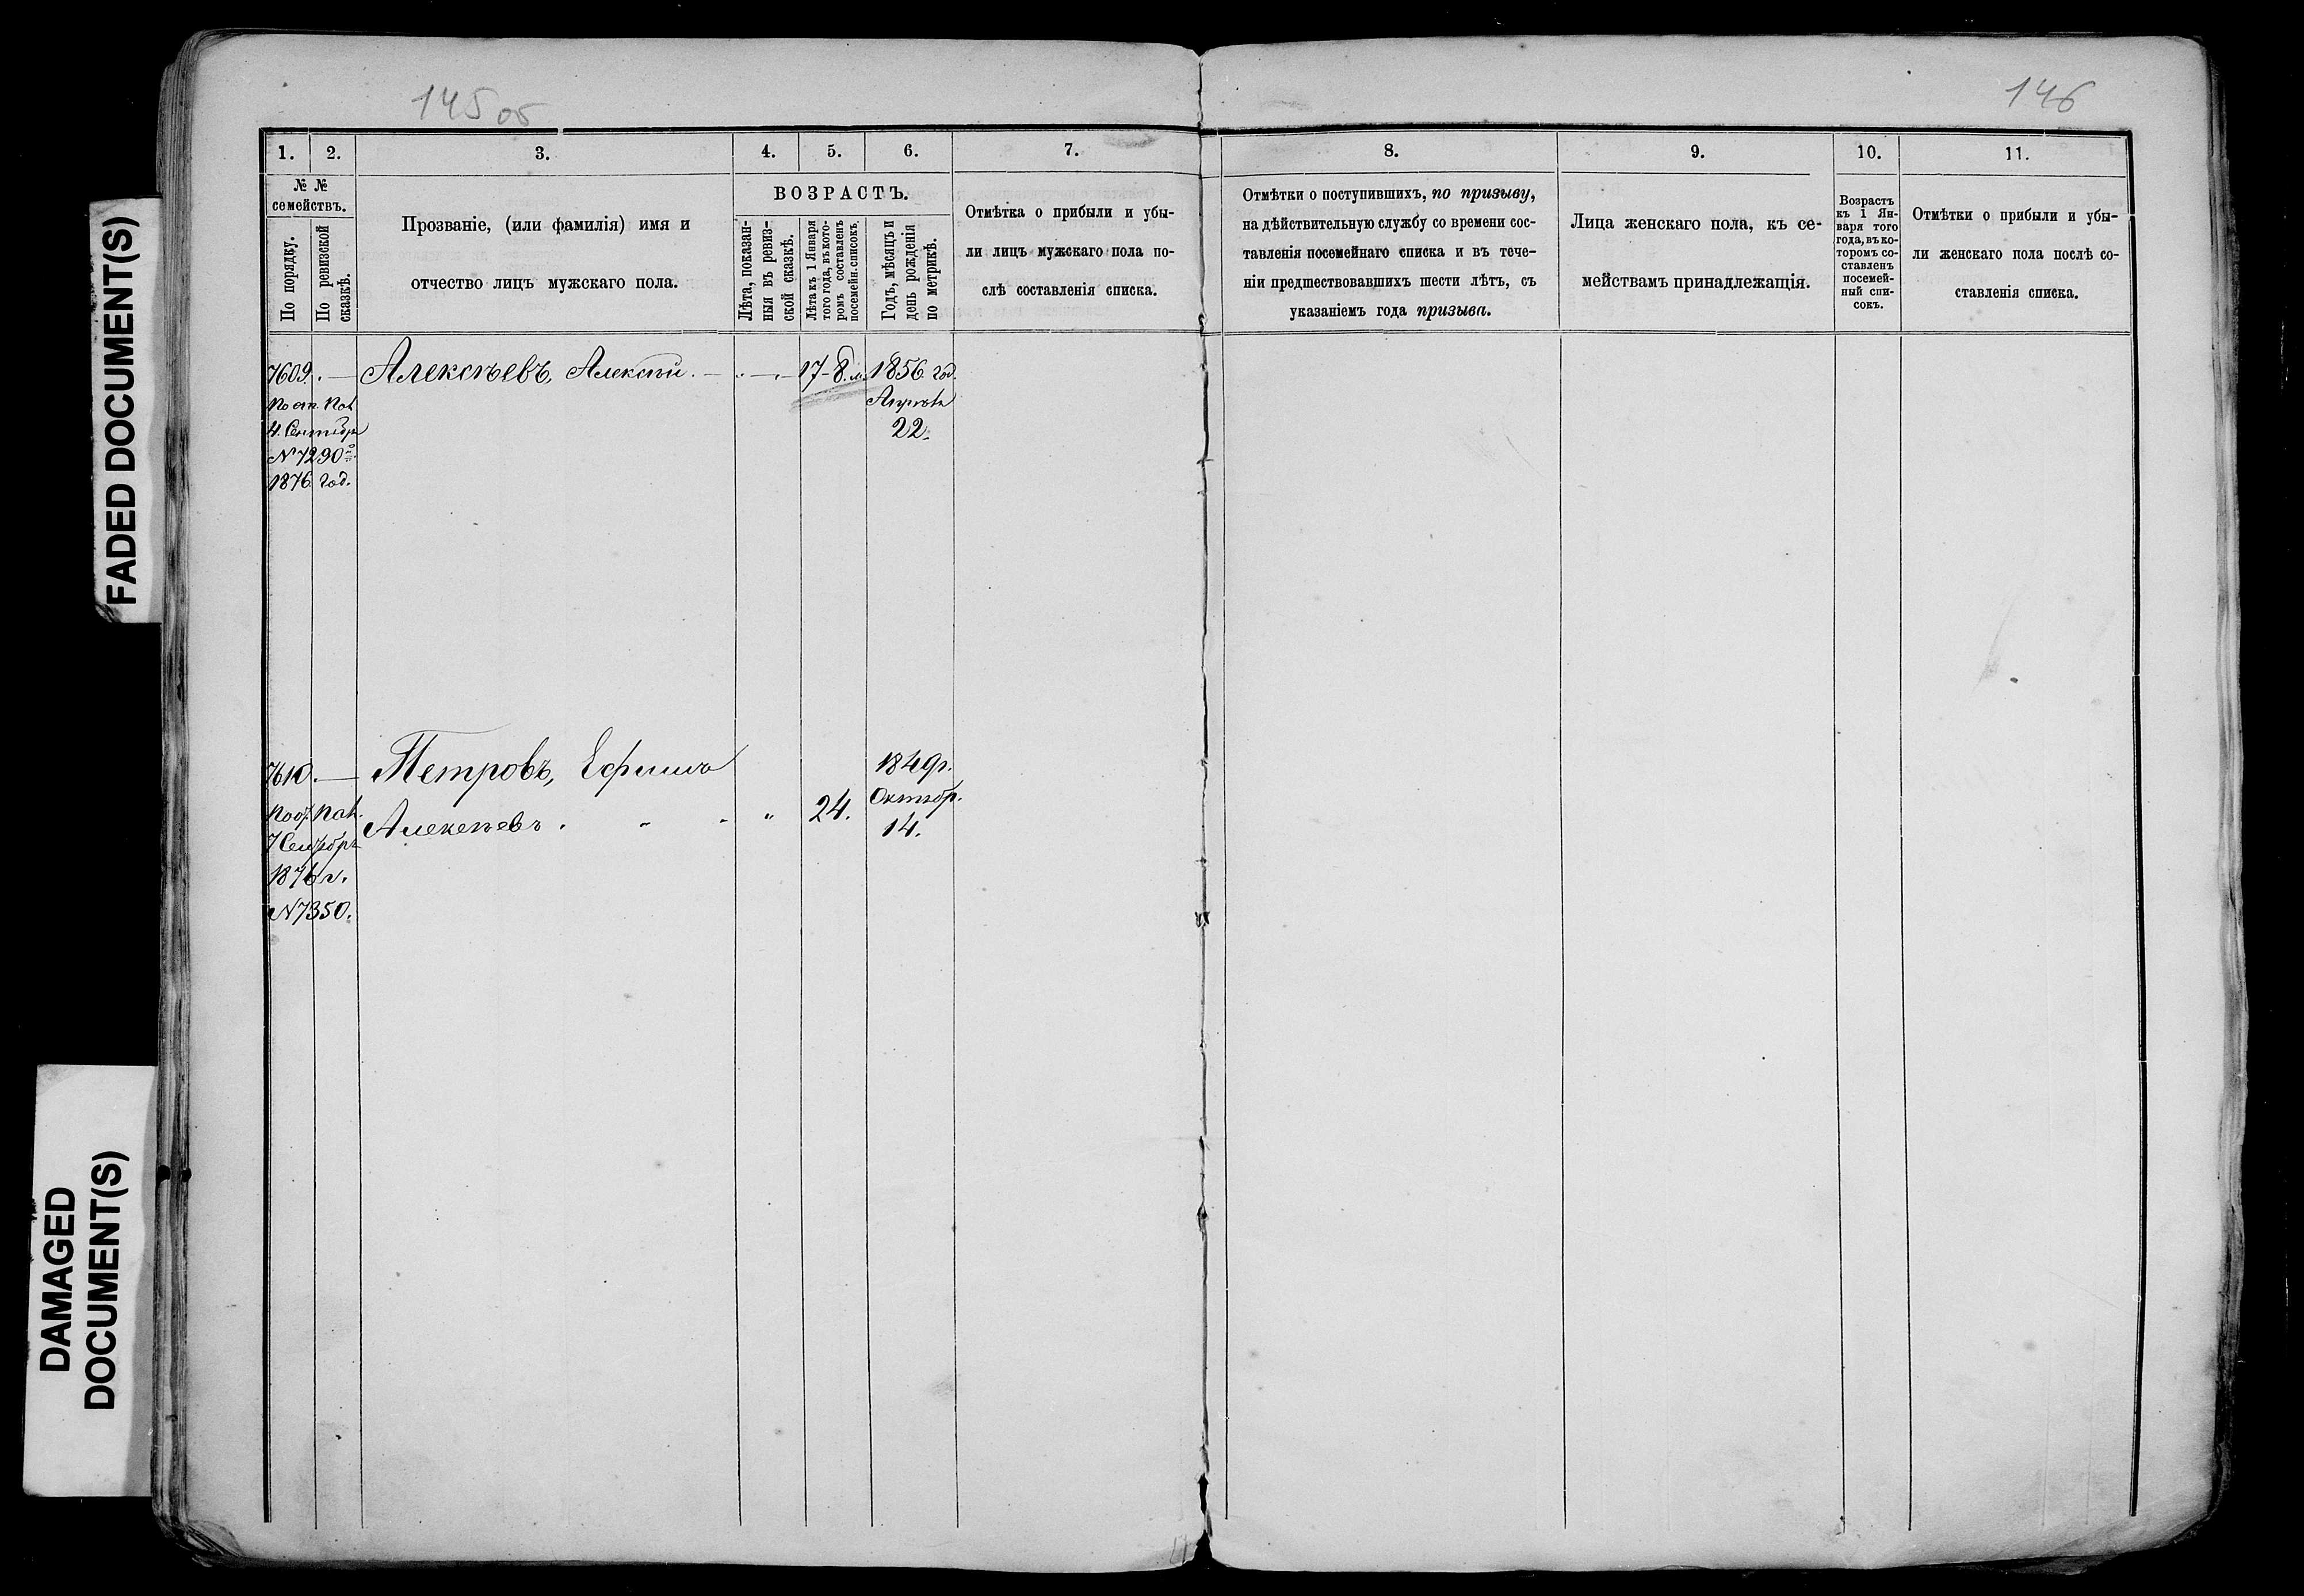 145 об
146
FADED DOCUMENT(S)
DAMAGED
DOCUMENT(S)
1.
2.
3.
4.
5.
6.
7.
8.
9.
10.
11.
№ №
семействъ.
По порядку.
По ревизской
сказкѣ.
Прозваніе, (или фамилія) имя и
отчество лицъ мужскаго пола.
ВОЗРАСТЪ.
Лѣта, показан-
ныя въ ревиз-
ской сказкѣ.
Лѣта къ 1 Января
того года, въ кото-
ромъ составленъ
посемейн. списокъ.
Годъ, мѣсяцъ и
день рожденія
по метрикѣ.
Отмѣтка о прибыли и убы-
ли лицъ мужскаго пола по-
слѣ составленія списка.
Отмѣтки о поступившихъ, по призыву,
на дѣйствительную службу со времени сос-
тавленія посемейнаго списка и въ тече-
ніи предшествовавшихъ шести лѣтъ, съ
указаніемъ года призыва.
Лица женскаго пола, къ се-
мействамъ принадлежащія.
Возрастъ
къ 1 Ян-
варя того
года, въ ко-
торомъ со-
ставленъ
посемей-
ный спи-
сокъ.
Отмѣтки о прибыли и убы-
ли женскаго пола послѣ со-
ставленія списка.
7609. — Алексѣевъ, Алексѣй. — 17-8.м. 1856 год.
Апрѣля
22.
4. Сентябр
№ 7290
1876 год.
7610. — Петровъ, Ефимъ 1849г.
Алексѣевъ. " 24. Октябр.
14.
7 Сентябр
1876 г.
№ 7350.